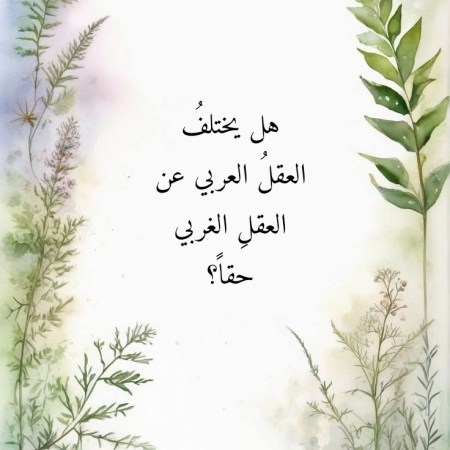 هل يختلفُ
العقلُ العربي عن
العقلِ الغربي
حقاً؟